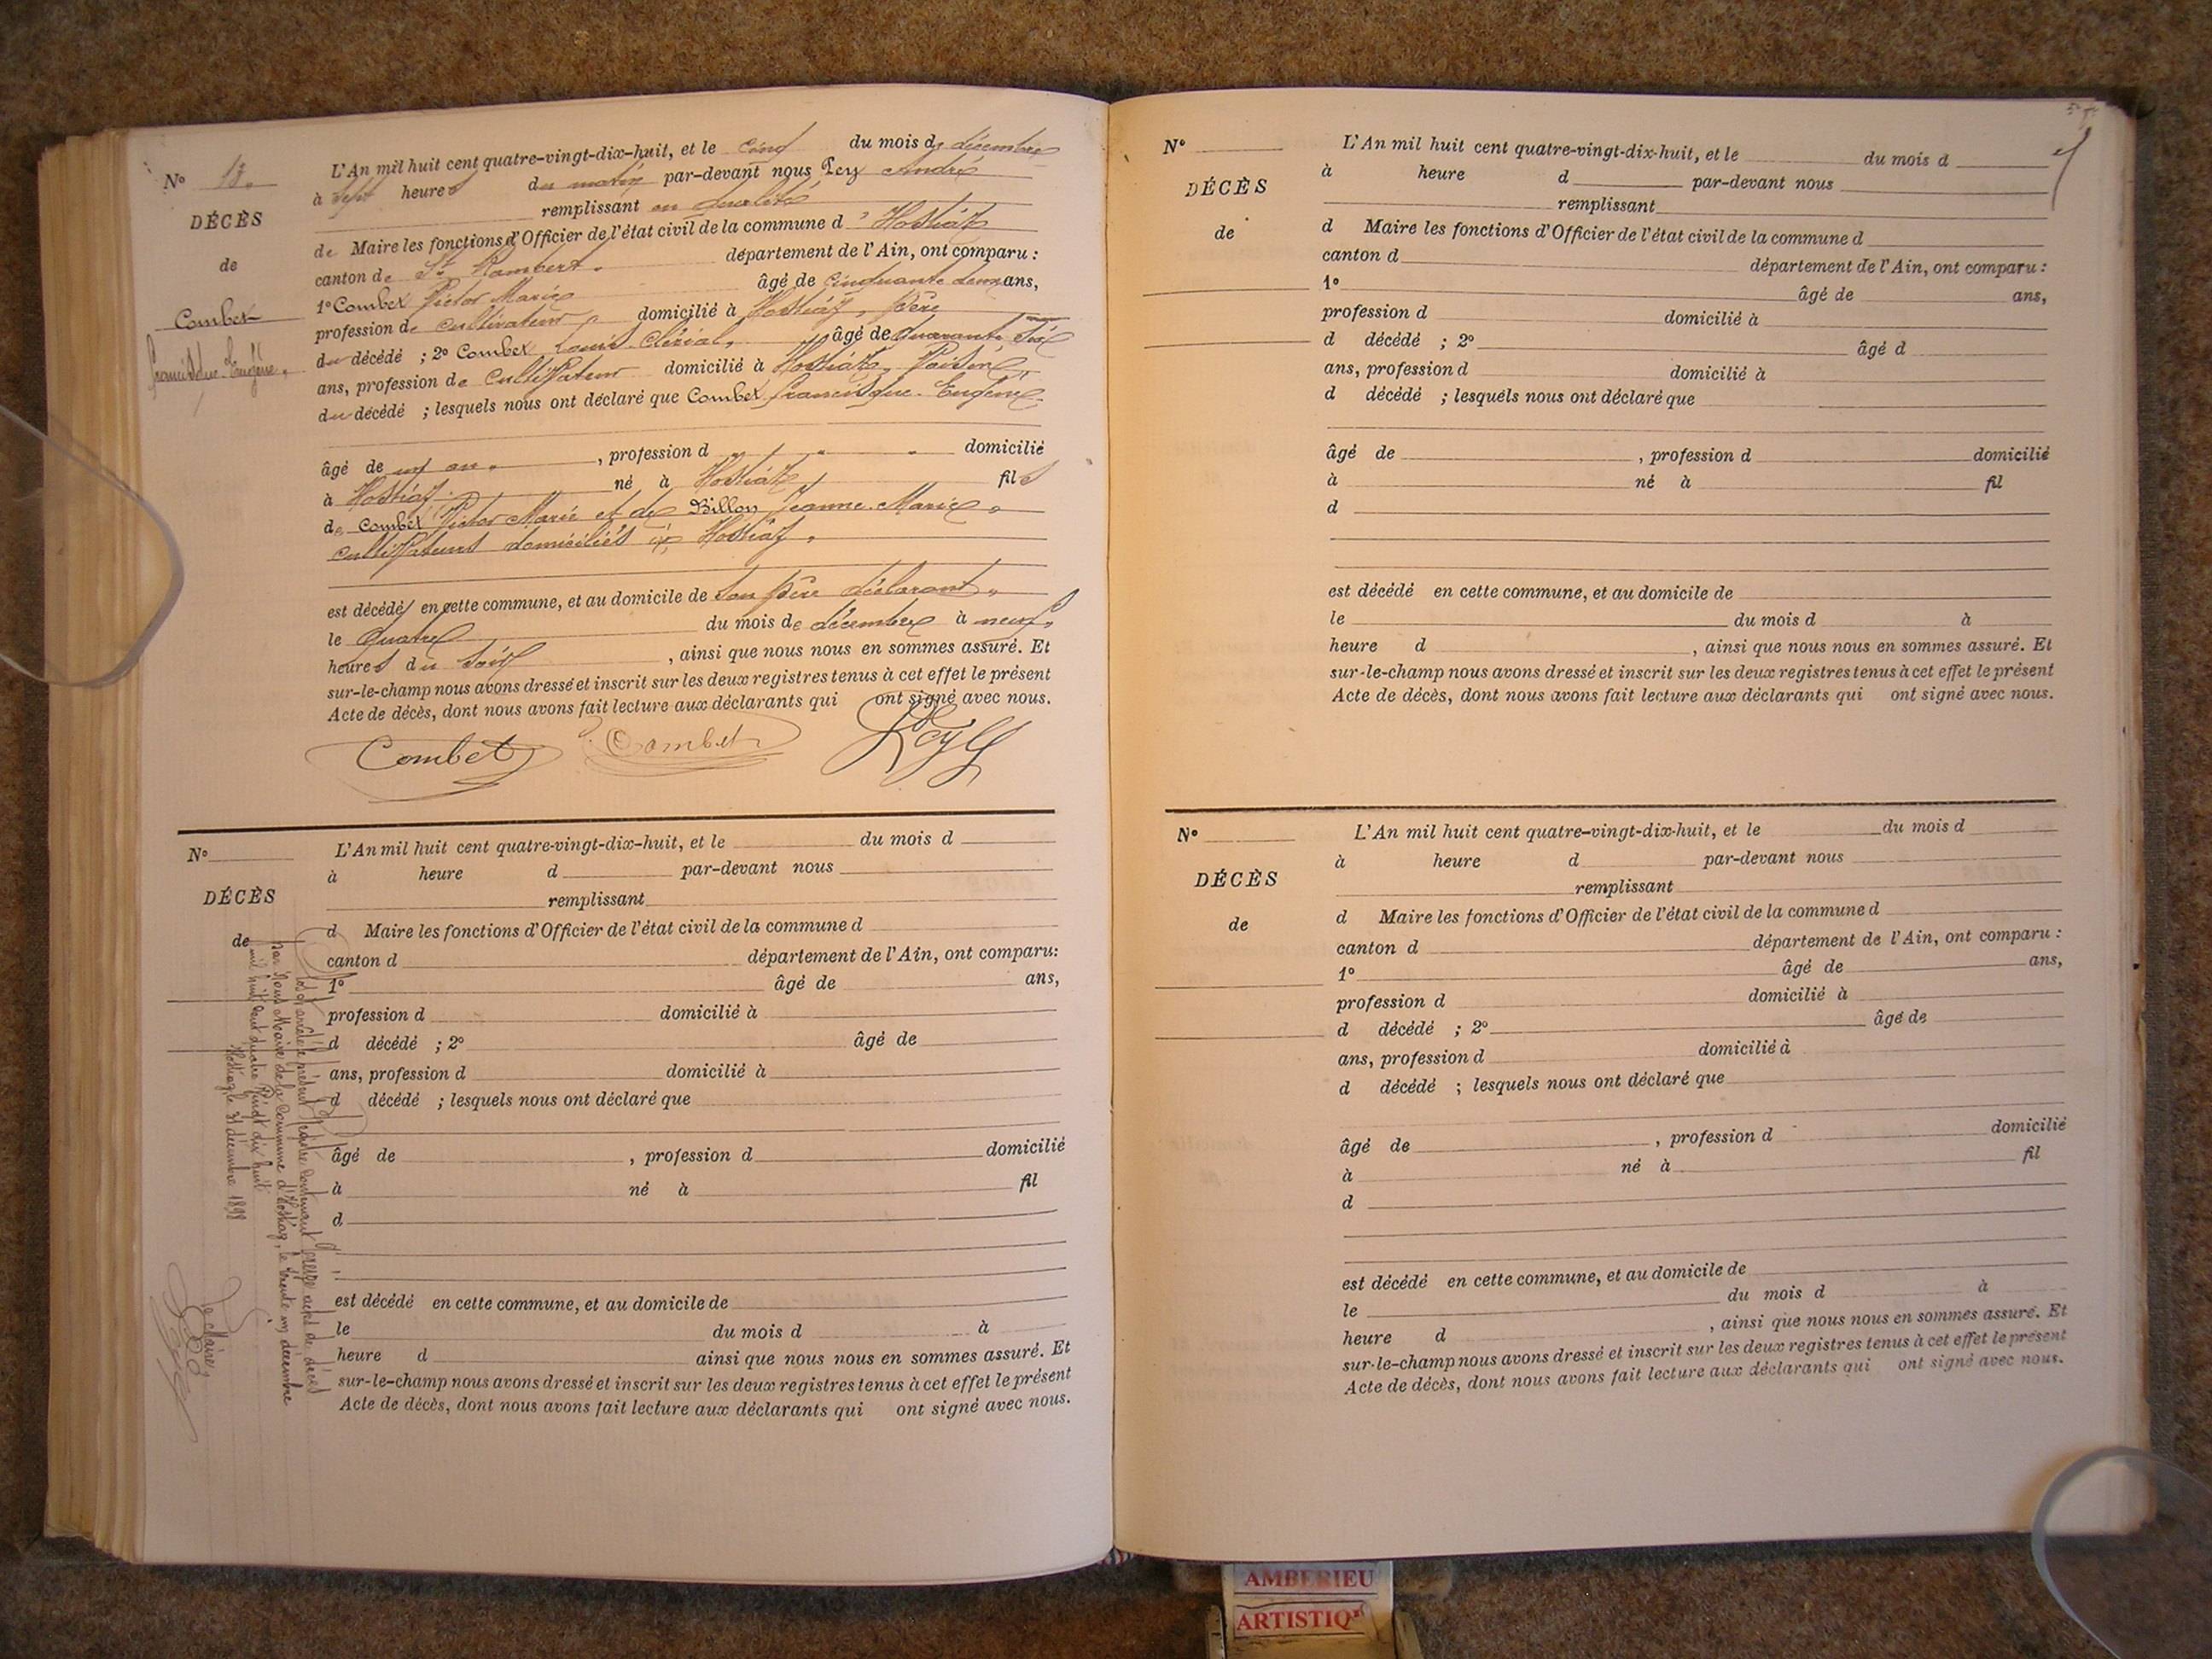 N° 13.
DÉCÈS
de
Combet
Francisque Eugène.
L'An mil huit cent quatre-vingt-dix-huit, et le cinq du mois de décembre
à sept heures du matin par-devant nous Pey André
remplissant en qualité
de Maire les fonctions d'Officier de l'état civil de la commune d' Hostiaz
canton de St Rambert. département de l'Ain, ont comparu :
1° Combet Victor Marie âgé de cinquante deux ans,
profession de cultivateur, domicilié à Hostiaz, père
du décédé ; 2° Combet Louis Clérial, âgé de quarante six
ans, profession de cultivateur domicilié à Hostiaz, voisin,
du décédé ; lesquels nous ont déclaré que Combet Francisque Eugène
âgé de un an. , profession d domicilié
à Hostiaz né à Hostiaz fils
de Combet Victor Marie et de Billon Jeanne Marie,
cultivateurs domiciliés à Hostiaz.
est décédé en cette commune, et au domicile de son père déclarant,
le quatre du mois de décembre à neuf
heures du soir , ainsi que nous nous en sommes assuré. Et
sur-le-champ nous avons dressé et inscrit sur les deux registres tenus à cet effet le présent
Acte de décès, dont nous avons fait lecture aux déclarants qui ont signé avec nous.
Combet Combet Pey
N°
DÉCÈS
de
L'An mil huit cent quatre-vingt-dix-huit, et le du mois d
à heure d par-devant nous
remplissant
d Maire les fonctions d'Officier de l'état civil de la commune d
canton d département de l'Ain, ont comparu:
1° âgé de ans,
profession d domicilié à
d décédé ; 2° âgé de
ans, profession d domicilié à
d décédé ; lesquels nous ont déclaré que
âgé de , profession d domicilié
à né à fil
d
est décédé en cette commune, et au domicile de
le du mois d à
heure d ainsi que nous nous en sommes assuré. Et
sur-le-champ nous avons dressé et inscrit sur les deux registres tenus à cet effet le présent
Acte de décès, dont nous avons fait lecture aux déclarants qui ont signé avec nous.
Clos et arrêté le présent registre contenant treize actes de décès
par Nous Maire de la Commune d'Hostiaz, le trente un décembre
mil huit cent quatre vingt dix huit
Hostiaz le 31 décembre 1898
Le Maire
Pey
N°
DÉCÈS
de
L'An mil huit cent quatre-vingt-dix-huit, et le du mois d
à heure d par-devant nous
remplissant
d Maire les fonctions d'Officier de l'état civil de la commune d
canton d département de l'Ain, ont comparu :
1° âgé de ans,
profession d domicilié à
d décédé ; 2° âgé d
ans, profession d domicilié à
d décédé ; lesquels nous ont déclaré que
âgé de , profession d domicilié
à né à fil
d
est décédé en cette commune, et au domicile de
le du mois d à
heure d , ainsi que nous nous en sommes assuré. Et
sur-le-champ nous avons dressé et inscrit sur les deux registres tenus à cet effet le présent
Acte de décès, dont nous avons fait lecture aux déclarants qui ont signé avec nous.
N°
DÉCÈS
de
L'An mil huit cent quatre-vingt-dix-huit, et le du mois d
à heure d par-devant nous
remplissant
d Maire les fonctions d'Officier de l'état civil de la commune d
canton d département de l'Ain, ont comparu :
1° âgé de ans,
profession d domicilié à
d décédé ; 2° âgé de
ans, profession d domicilié à
d décédé ; lesquels nous ont déclaré que
âgé de , profession d domicilié
à né à fil
d
est décédé en cette commune, et au domicile de
le du mois d à
heure d , ainsi que nous nous en sommes assuré. Et
sur-le-champ nous avons dressé et inscrit sur les deux registres tenus à cet effet le présent
Acte de décès, dont nous avons fait lecture aux déclarants qui ont signé avec nous.
AMBERIEU
ARTISTIQ